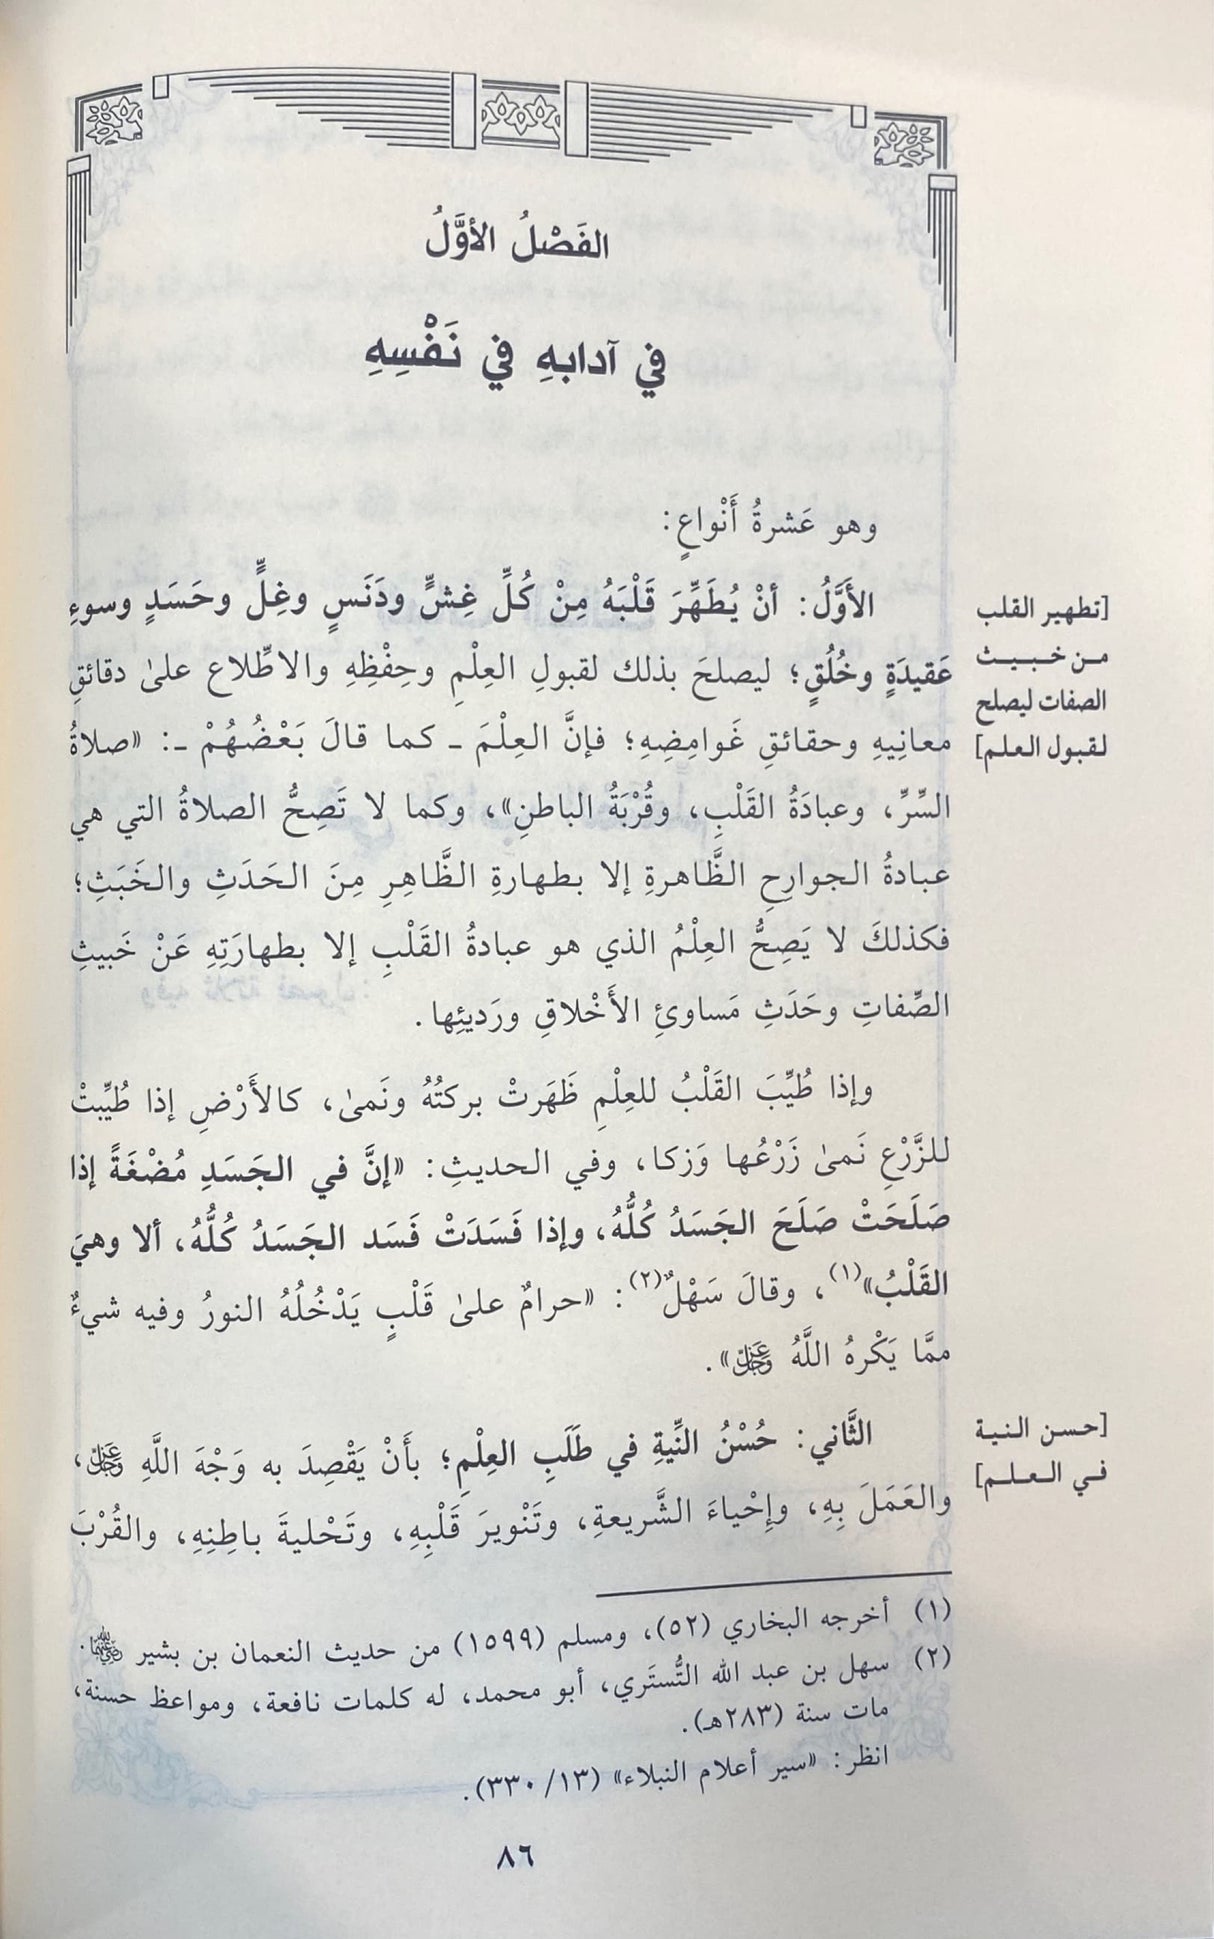 الفَصْلُ الأوَّلُ
في آدابهِ في نَفْسِهِ
وهو عَشرةُ أَنْواعٍ:
الأَوَّلُ: أنْ يُطَهِّرَ قَلْبَهُ مِنْ كُلِّ غِشٍّ ودَنَسٍ وغِلٍّ وحَسَدٍ وسوءِ
عَقيدَةٍ وخُلُقٍ؛ ليصلحَ بذلك لقبولِ العِلْمِ وحِفْظِهِ والاطِّلاع علىٰ دقائقِ
معانِيهِ وحقائقِ غَوامِضِهِ؛ فإنَّ العِلْمَ ـ كما قالَ بَعْضُهُمْ ـ: «صلاةُ
السِّرِّ، وعبادَةُ القَلْبِ، وقُرْبَةُ الباطنِ»، وكما لا تَصِحُّ الصلاةُ التي هي
عبادةُ الجوارحِ الظَّاهرةِ إلا بطهارةِ الظَّاهِرِ مِنَ الحَدَثِ والخَبَثِ؛
فكذلكَ لا يَصِحُّ العِلْمُ الذي هو عبادةُ القَلْبِ إلا بطهارَتِهِ عَنْ خَبيثِ
الصِّفاتِ وحَدَثِ مَساوئِ الأَخْلاقِ ورَديئِها.
وإذا طُيِّبَ القَلْبُ للعِلْمِ ظَهَرتْ بركتُهُ ونَمىٰ، كالأَرْضِ إذا طُيِّبتْ
للزَّرْعِ نَمىٰ زَرْعُها وَزكا، وفي الحديثِ: «إنَّ في الجَسَدِ مُضْغَةً إذا
صَلَحَتْ صَلَحَ الجَسَدُ كُلُّهُ، وإذا فَسَدَتْ فَسَد الجَسَدُ كُلُّهُ، ألا وهيَ
القَلْبُ»(١)، وقالَ سَهْلٌ(٢): «حرامٌ علىٰ قَلْبٍ يَدْخُلُهُ النورُ وفيه شيءٌ
ممَّا يَكْرهُ اللَّهُ عَزَّ وَجَلَّ».
الثَّاني: حُسْنُ النِّيةِ في طَلَبِ العِلْمِ؛ بأَنْ يَقْصِدَ به وَجْهَ اللَّهِ عَزَّ وَجَلَّ،
والعَمَلَ بِهِ، وإِحْياءَ الشَّريعةِ، وتَنْويرَ قَلْبِهِ، وتَحْليةَ باطِنِهِ، والقُرْبَ
[تطهير القلب
من خبيث
الصفات ليصلح
لقبول العلم]
[حسن النية
في العلم]
(١) أخرجه البخاري (٥٢)، ومسلم (١٥٩٩) من حديث النعمان بن بشير رضي الله عنهما.
(٢) سهل بن عبد الله التُّستَري، أبو محمد، له كلمات نافعة، ومواعظ حسنة،
مات سنة (٢٨٣هـ).
انظر: «سير أعلام النبلاء» (١٣/ ٣٣٠).
٨٦